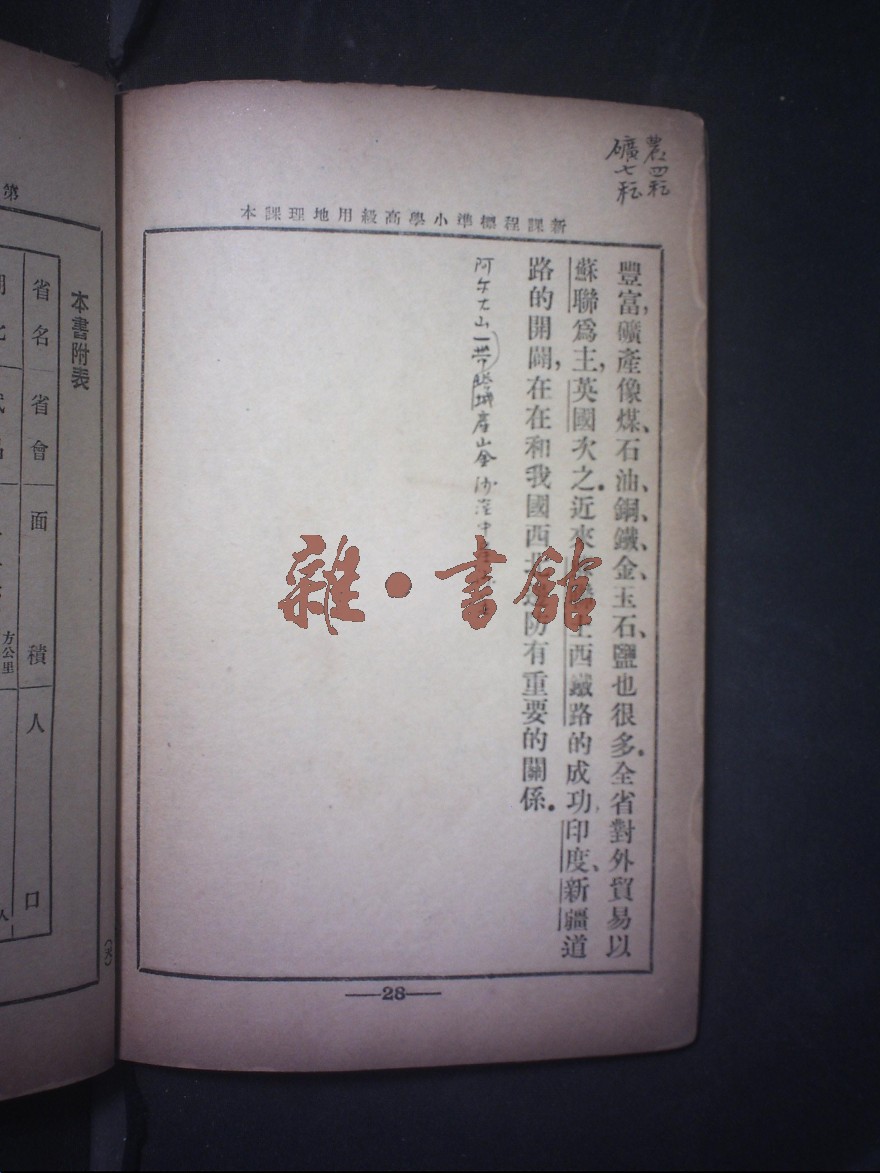 新課程標準小學高級用地理課本
農四種
礦七種
豐富，礦產像煤、石油、銅、鐵、金、玉石、鹽也很多。全省對外貿易以
蘇聯爲主，英國次之。近來西鐵路的成功，印度、新疆道
路的開闢，在在和我國西防有重要的關係。
一帶產金
28
雜·書館
第
本書附表
省名 省會 面積 人口
方公里